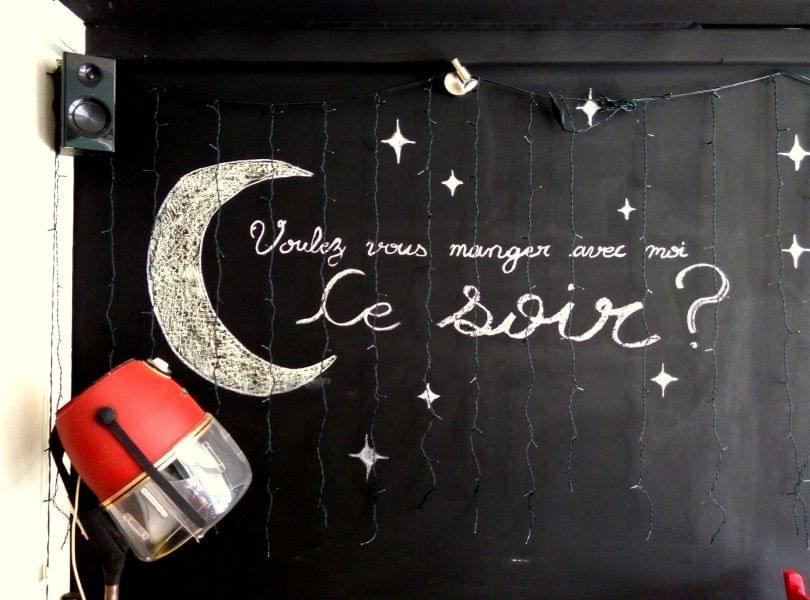 Voulez vous manger avec moi
Ce soir ?